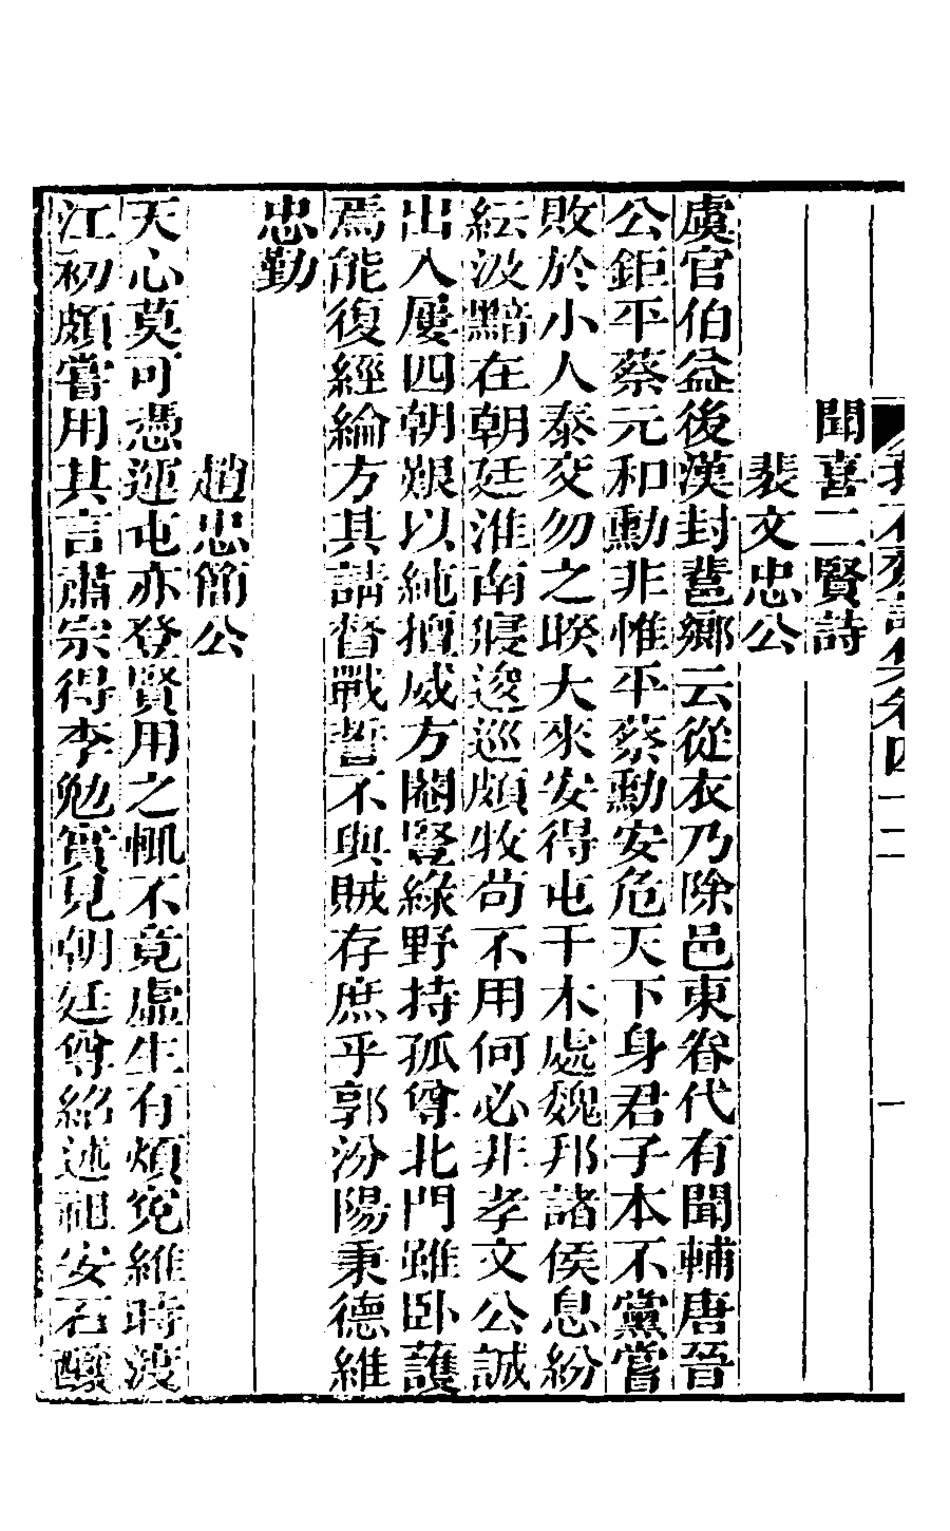 聞喜二賢詩
裴文忠公
虞官伯益後漢封䓲鄉云從衣乃除邑東眷代有聞輔唐晉
公鉅平蔡元和勳非惟平蔡勳安危天下身君子本不黨嘗
敗於小人泰交勿之暌大來安得屯干木處魏邦諸侯息紛
紜汲黯在朝廷淮南寢逡巡頗牧苟不用何必非孝文公誠
出入屢四朝艱以純擅威方閹豎綠野持孤尊北門雖臥護
焉能復經綸方其請督戰誓不與賊存庶乎郭汾陽秉德維
忠勤
趙忠簡公
天心莫可憑運屯亦登賢用之輒不竟虛生有煩冤維時渡
江初頗嘗用其言肅宗得李勉實見朝廷尊紹述祖安石釀